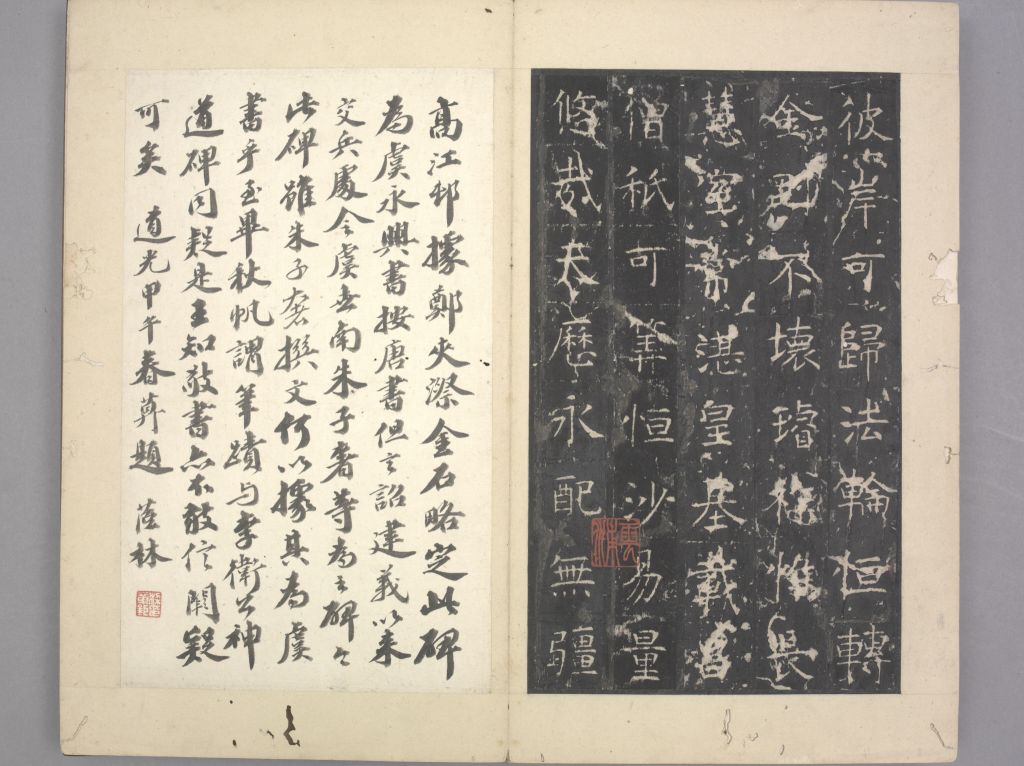 彼岸可歸法輪恒轉
金剛不壞璿惟長
慧室常湛皇基載昌
僧祇可筭恒沙易量
悠哉天曆永配無疆
高江邨據鄭夾漈金石略定此碑
為虞永興書按唐書但言詔建義以來
交兵處令虞世南朱子奢等為之碑
此碑雖朱子奢撰文何以據其為虞
書乎至畢秋帆謂筆蹟与李衛公神
道碑同疑是王知敬書亦不敢信闕疑
可矣 道光甲午春題 林